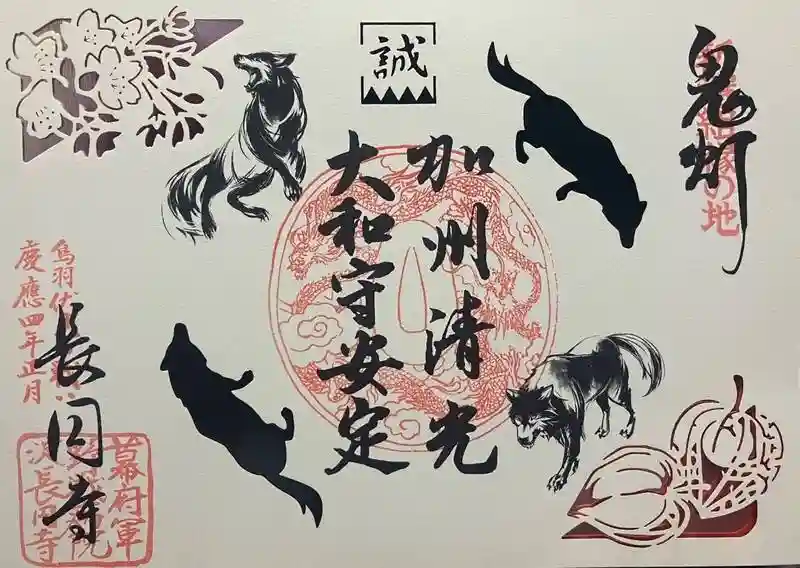 鬼灯
の地
誠
加州清光
大和守安定
鳥羽伏
慶應四年正月
長円寺
幕府軍
院
淀長円寺